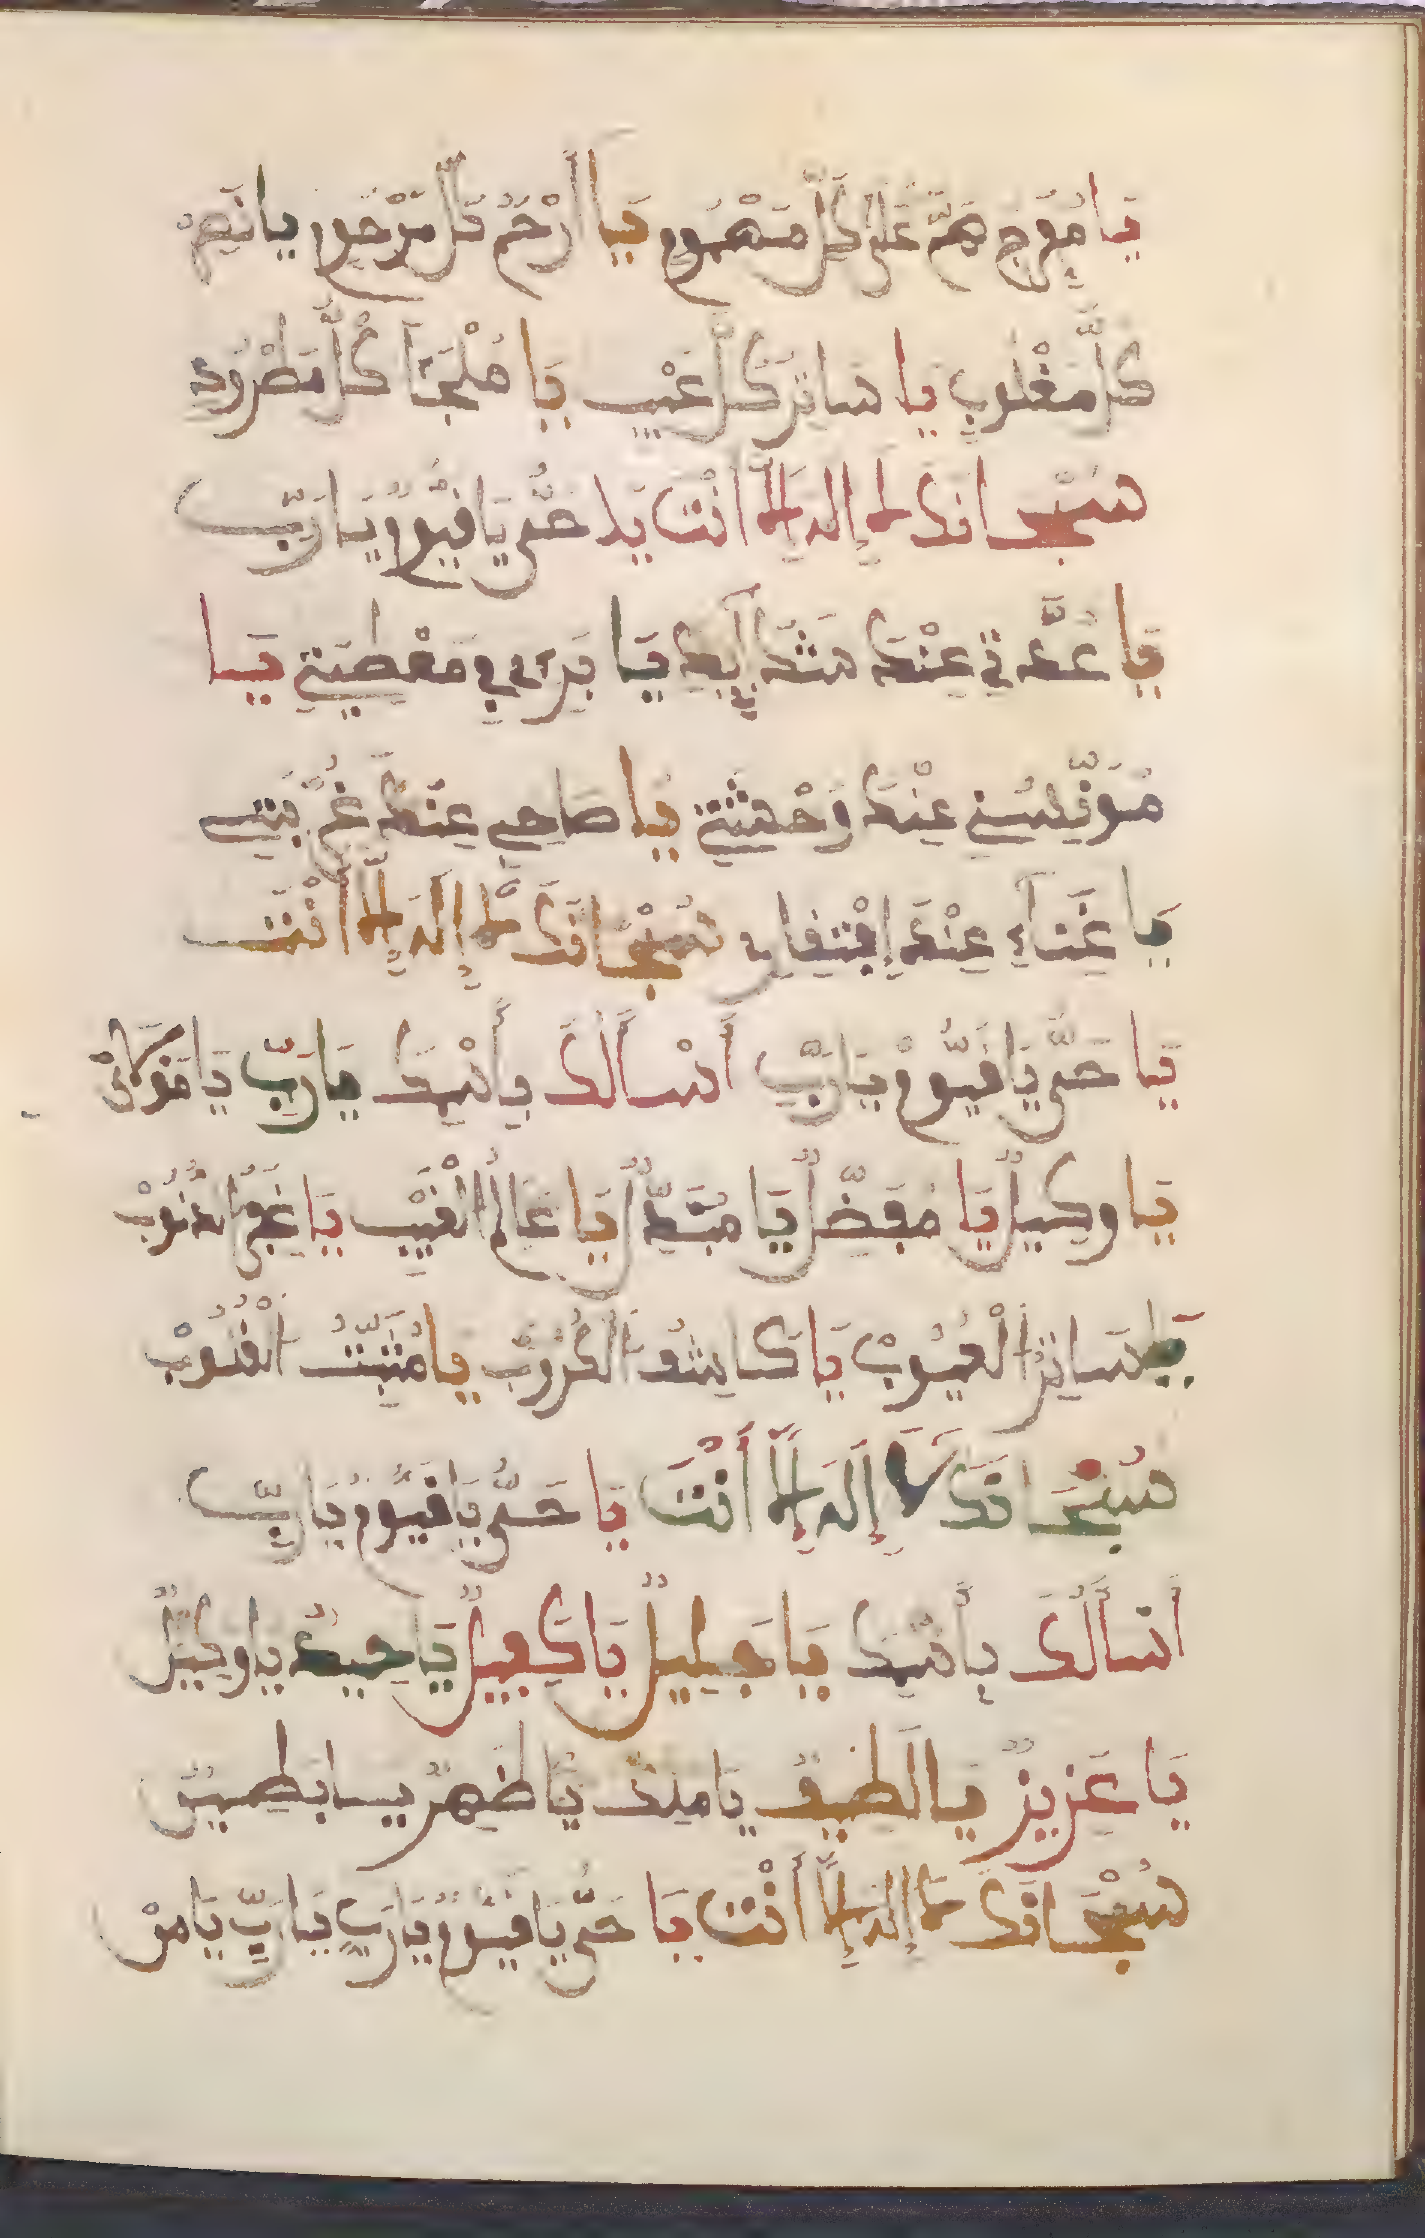 يَا مُفَرِّجَ هَمٍّ عَلَى كُلِّ مَهْمُومٍ يَا أَرْحَمُ كُلِّ مَرْحُومٍ يَا نَصِرَ
كُلِّ مَغْلُوبٍ يَا سَاتِرَ كُلِّ عَيْبٍ يَا مَلْجَأَ كُلِّ مَطْرُودٍ
سُبْحَانَكَ لَا إِلَهَ إِلَّا أَنْتَ يَا حَيُّ يَا قَيُّومُ يَا رَبِّ
يَا عُدَّتِي عِنْدَ شَدَائِدِ يَا فِي مَعْطِيَتِي يَا
مُوَنِّسُنِي عِنْدَ وَحْشَتِي يَا صَاحِبِي عِنْدَ غُرْبَتِي
يَا غَنَاءِ عِنْدَ إِفْتِقَارِي سُبْحَانَكَ لَا إِلَهَ إِلَّا أَنْتَ
يَا حَيُّ يَا قَيُّومُ يَا رَبِّ أَسْأَلُكَ بِاسْمِكَ يَا رَبِّ يَا مَنْ كَانَ
يَا وَكِيلُ يَا مُفَضِّلُ يَا مُبَدِّلُ يَا عَالِمُ الْغَيْبِ يَا غَفِرُ الذُّنُوبْ
يَا سَاتِرُ الْعُيُوبْ يَا كَاشِفُ الْكُرُوبْ يَا مُثَبِّتُ الْقُلُوبْ
سُبْحَانَكَ لَا إِلَهَ إِلَّا أَنْتَ يَا حَيُّ يَا قَيُّومُ يَا رَبِّ
أَسْأَلُكَ بِاسْمِكَ يَا جَلِيلٌ يَا كَفِيلٌ يَا حَمِيدٌ يَا وَكِيلٌ
يَا عَزِيزٌ يَا لَطِيفٌ يَا مَلِكٌ يَا ظَهِرٌ يَا بَصِيرٌ
سُبْحَانَكَ لَا إِلَهَ إِلَّا أَنْتَ يَا حَيُّ يَا قَيُّومُ يَا رَبِّ يَا رَبِّ يَا مَنْ